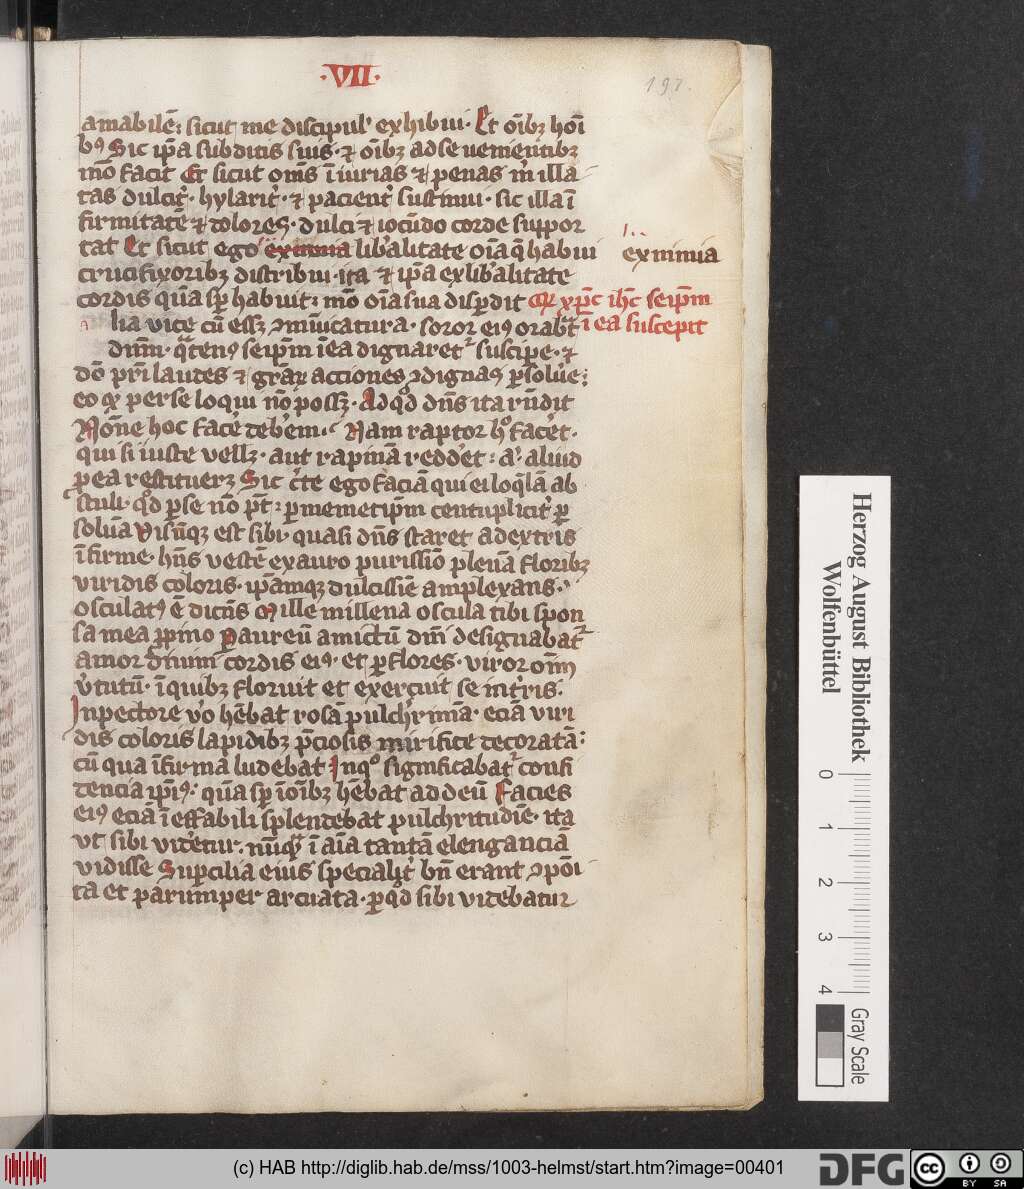 ·VII·
197.
amabilē: sicut me discipul' exhibui· Et oīb₃ hoī
b⁹ Sic ip̄a subditis suis· ⁊ oīb₃ ad se uenientib₃
mō facit Et sicut om̄s īiurias ⁊ penas m̄ illa
tas dulcit̾· hylarit̾· ⁊ pacient̾ sustinui· sic illa ī
firmitatē ⁊ dolores· dulci ⁊ iocūdo corde suppor
tat Et sicut ego eximia lib̾alitate oīa q̄ habui
eximia
crucifixorib₃ distribui· ita ⁊ ip̄a ex lib̾alitate
cordis quā sp̄ habuit: mō oīa sua disp̄dit
Q xp̄c ih̄c seip̄m
ī ea suscepit
lia vice cū ess₃ ꝯmūicatura· soror ei⁹ orab̄t
dn̄m· q̄ten⁹ seip̄m ī ea dignaret̾ suscipe· ⁊
deō pr̄i laudes ⁊ gr̄aꝝ acciones ꝯdignas ꝑsolu̾e:
eo ꝙ per se loqui nō poss₃· Ad qd̄ dn̄s ita rn̄dit
Nōne hoc fac̾e deb̾em· Nam raptor h° fac̾et·
qui si iuste vell₃· aut rapinā redd̾et: aͥ aliud
ꝑ ea restituerꝫ Sic c̾te ego faciā qui ei loq̄lā ab
stuli· qd̄ ꝑ se nō pt̄: ꝑ memetip̄m centuplicit̾ ꝑ
soluā Visūq₃ est sibi· quasi dn̄s staret a dextris
īfirme· hn̄s vestē ex auro purissīo plenā florib₃
viridis coloris· ip̄amq₃ dulcissīe amplexans·
osculat⁹ ē dicēs Mille millena oscula tibi spon
sa mea ꝓpino Per aureū amictū dn̄i designabat̾
amor diuin⁹ cordis ei⁹· et ꝑ flores· viror om̄
v̾tutū· ī quib₃ floruit et exercuit se int̾ris·
In pectore v̾o hēbat rosā pulch̾rimā· eciā viri
dis coloris lapidib₃ p̄ciosis mirifice decoratā:
cū qua īfirmā ludebat In qͦ significabat̾ confi
dencia ip̄i⁹· quā sp̄ ī oīb₃ hēbat ad deū Facies
ei⁹ eciā ineffabili splendebat pulchritudīe· ita
vt sibi vid̾etur· nūq̄ ī aīa tantā elenganciā
vidisse Supercilia eius specialit̾ bn̄ erant ꝯpoi
ta et parumper arcuata· ꝑ qd̄ sibi videbatur
Herzog August Bibliothek
Wolfenbüttel
0 1 2 3 4
Gray Scale
(c) HAB http://diglib.hab.de/mss/1003-helmst/start.htm?image=00401
DFG
cc BY SA